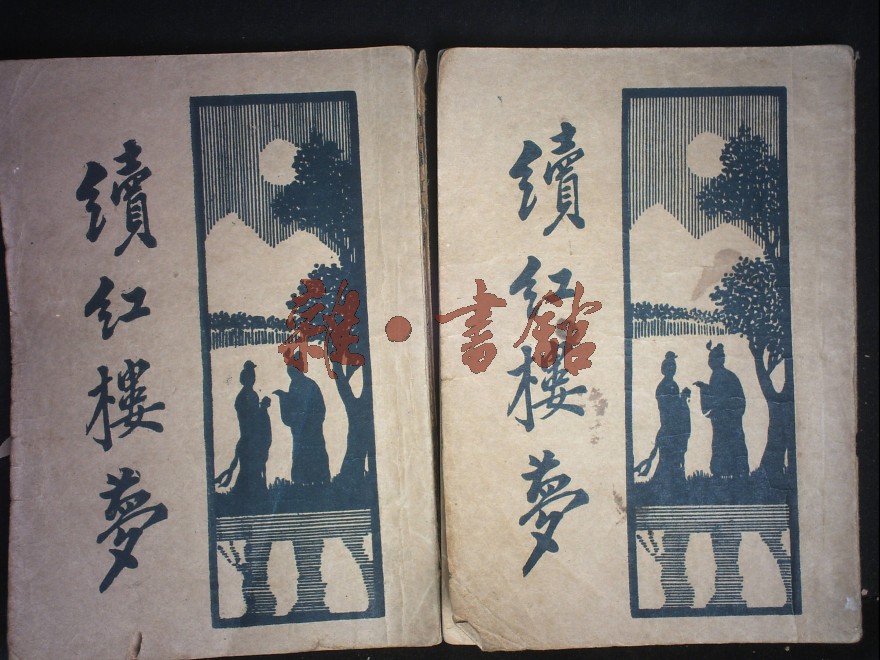 續紅樓夢
續紅樓夢
雜·書館